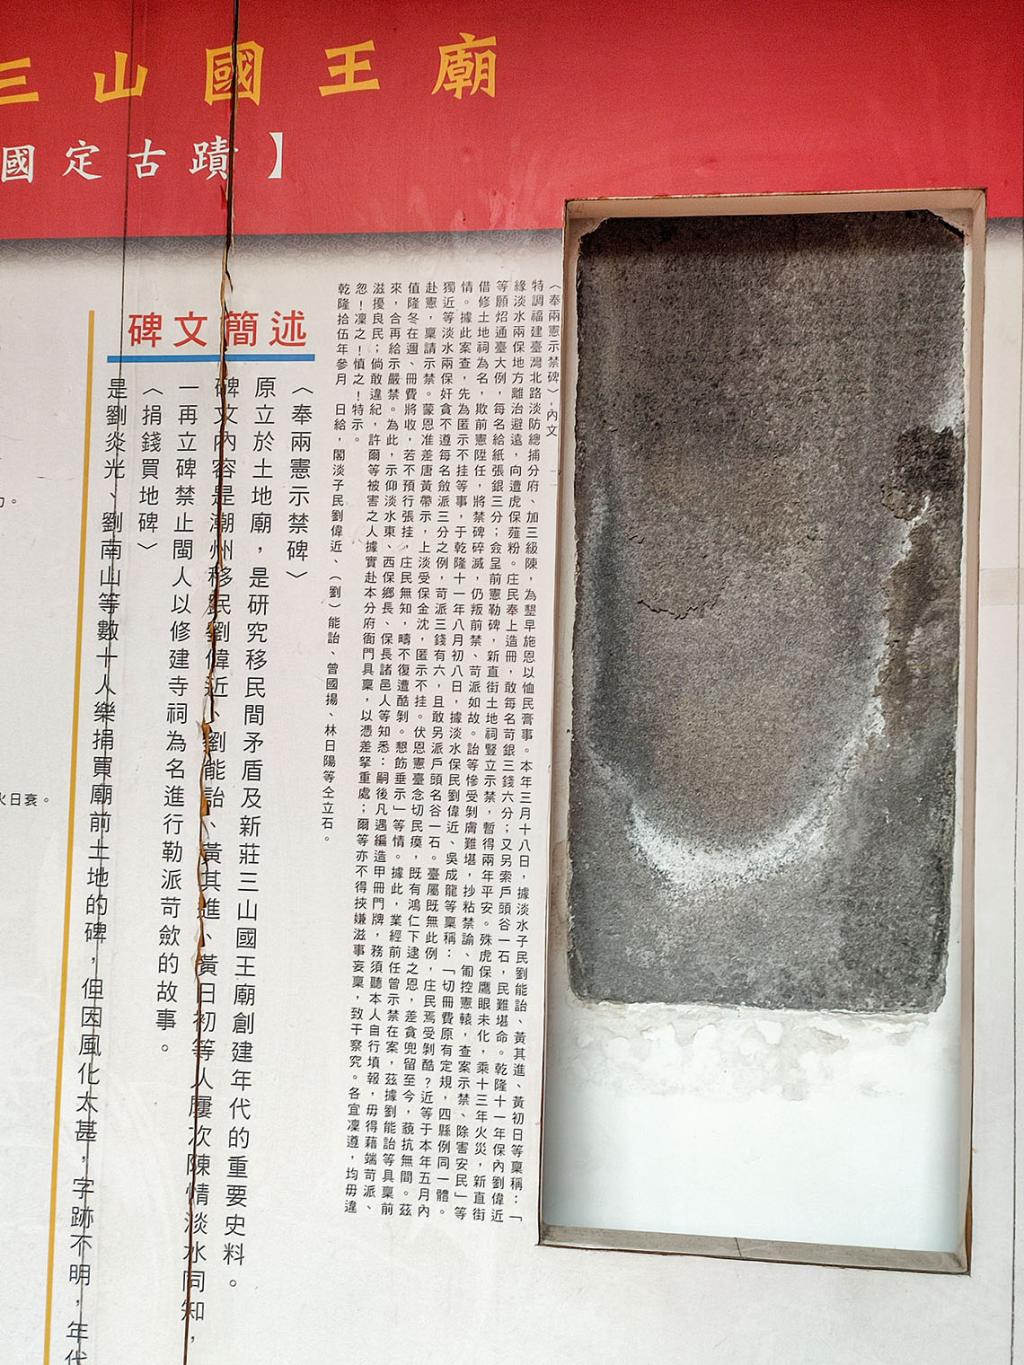 三山國王廟
國定古蹟】
〈奉兩憲示禁碑〉,內文
特調福建臺灣北路淡防總捕分府、加三級陳，為墾早施恩以恤民膏事。本年三月十八日，據淡水子民劉能詒、黃其進、黃初日等稟稱：「
緣淡水兩保地方離治避遠，向遭虎保薤粉。庄民奉上造冊，敢每名苛銀三錢六分；又另索戶頭谷一石，民難堪命。乾隆十一年保內劉偉近
等願炤通臺大例，每名給紙張銀三分；僉呈前憲勒碑，新直街土地祠豎立示禁，暫得兩年平安。殊虎保鷹眼未化，乘十三年火災，新直街
借修土地祠為名，欺前憲陞任，將禁碑碎滅，仍叛前禁、苛派如故。詒等慘受剝膚難堪，抄粘禁諭、匍控憲轅，查案示禁、除害安民」等
情。據此案查，先為匿示不挂等事，于乾隆十一年八月初八日，據淡水保民劉偉近、吳成龍等稟稱：「切冊費原有定規，四縣例同一體。
獨近等淡水兩保奸貪不遵每名斂派三分之例，苛派三錢有六，且敢另派戶頭名谷一石。臺屬既無此例，庄民焉受剝酷？近等于本年五月內
赴憲，稟請示禁。蒙恩准差唐黃帶示，上淡受保金沈，匿示不挂。伏恩憲臺念切民瘼，既有鴻仁下逮之恩，差貪兜留至今，藐抗無間。茲
值隆冬在邇、冊費將收，若不預行張挂，庄民無知，疇不復遭酷剝。懇飭垂示」等情。據此，業經前任曾示禁在案，茲據劉能詒等具稟前
來，合再給示嚴禁。為此，示仰淡水東、西保鄉長、保長諸邑人等知悉：嗣後凡遇編造甲冊門牌，務須聽本人自行填報，毋得藉端苛派、
滋擾良民；倘敢違紀，許爾等被害之人據實赴本分府衙門具稟，以憑差拏重處；爾等亦不得挾嫌滋事妄稟，致干察究。各宜凜遵，均毋違
忽！凜之！慎之！特示。
乾隆拾伍年參月　日給，闔淡子民劉偉近、（劉）能詒、曾國揚、林日陽等仝立石。
碑文簡述
〈奉兩憲示禁碑〉
原立於土地廟，是研究移民間矛盾及新莊三山國王廟創建年代的重要史料。
碑文內容是潮州移民劉偉近、劉能詒、黃其進、黃日初等人屢次陳情淡水同知，
一再立碑禁止閩人以修建寺祠為名進行勒派苛歛的故事。
〈捐錢買地碑〉
是劉炎光、劉南山等數十人樂捐買廟前土地的碑，但因風化太甚，字跡不明，年代
火日衰。